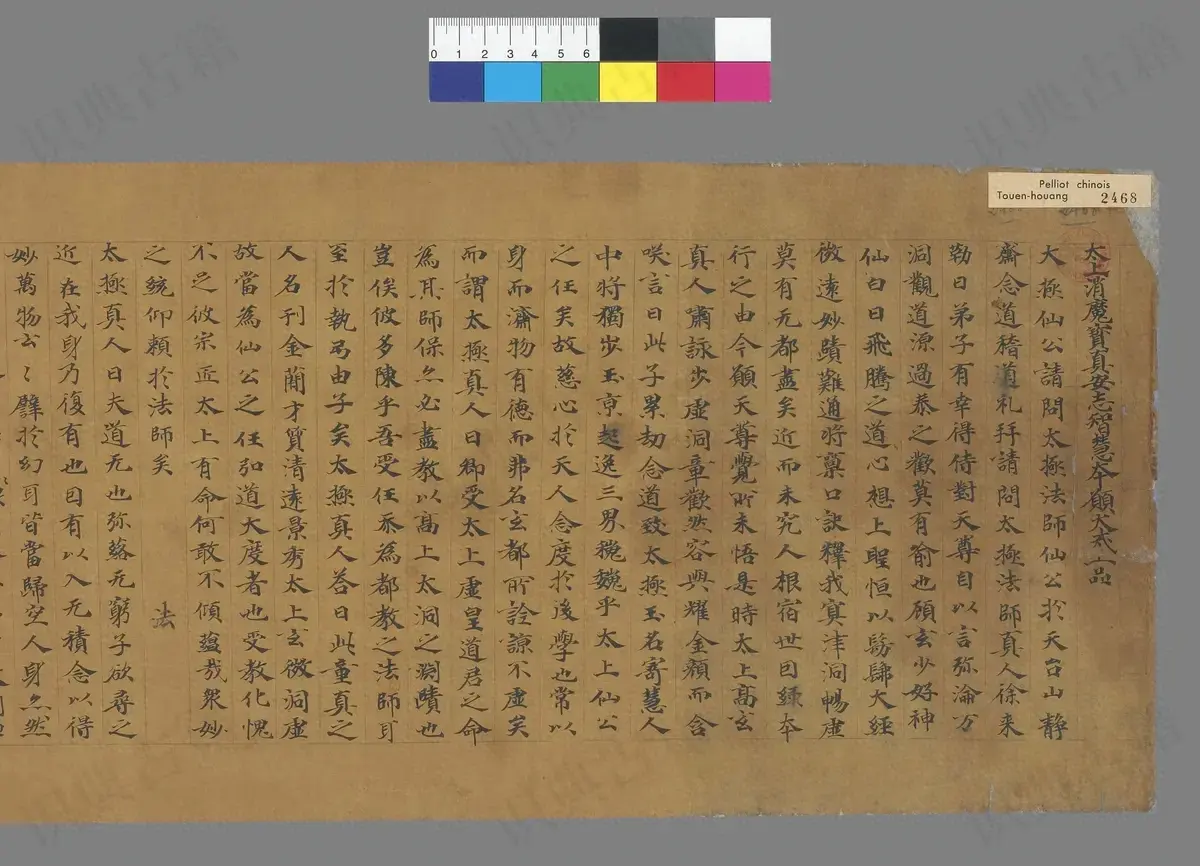 0 1 2 3 4 5 6
Pelliot chinois
Touen-houang 2468
太上消魔寶真安志智慧本願大戒上品
太極仙公請問太極法師仙公於天台山静
齋念道稽道礼拜請問太極法師真人徐来
勒曰弟子有幸得侍對天尊自以言弥淪万
洞觀道源過泰之歡莫有喻也顧玄少好神
仙白日飛騰之道心想上聖恒以髣髴大經
微遠妙賾難通將禀口訣釋我冥津洞暢虚
莫有无都盡矣近而未究人根宿世因緣本
行之由今願天尊覺所未悟是時太上高玄
真人嘯詠步虚洞章歡然容興耀金顏而含
咲言曰此子累劫念道致太極玉名寄慧人
中將獨步玉京超逸三界巍巍乎太上仙公
之任矣故慈心於天人念度於後學也常以
身而濟物有德而非名玄都所詮諒不虚矣
而謂太極真人曰卿受太上虚皇道君之命
為其師保亦必盡教以高上太洞之淵賾也
豈俟彼多陳乎吾受任忝為都教之法師耳
至於執丐由子矣太極真人荅曰此童真之
人名刊金蕳才質清遠景秀太上玄微洞虚
故當為仙公之任弘道大度者也受教化愧
不足彼宗匠太上有命何敢不傾蘊哉衆妙
之統仰頼於法師矣
法
太極真人曰夫道无也弥絡无窮子欲尋之
近在我身乃復有也因有以入无積念以得
妙萬物云〻譬於幻耳皆當歸空人身亦然